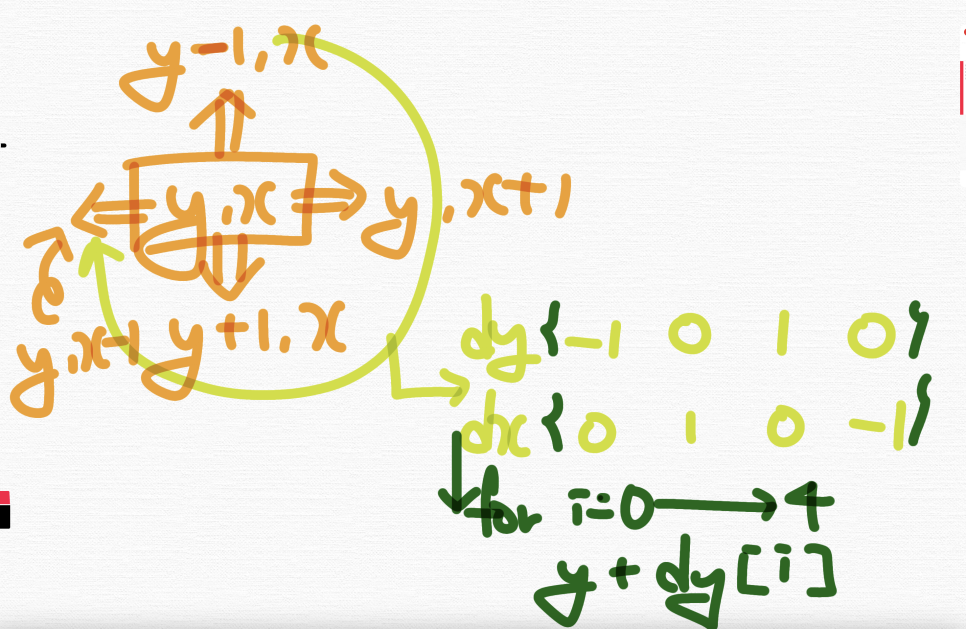 y-1,x
y,x
y,x+1
y+1,x
y,x-1
dy{-1 0 1 0}
dx{0 1 0 -1}
for i=0 → 4
y+dy[i]